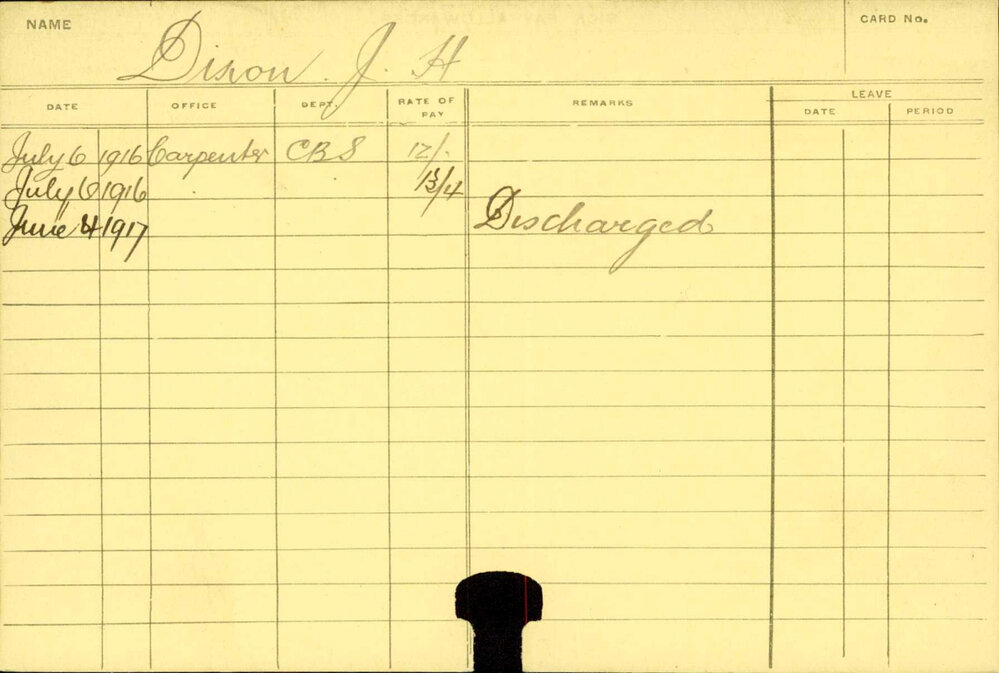 NAME
CARD No.
Dixon J. H
DATE OFFICE DEPT. RATE OF PAY REMARKS LEAVE
DATE PERIOD
July 6 1916 Carpenter CBS 12/-
July 6 1916 13/4
June 4 1917 Discharged